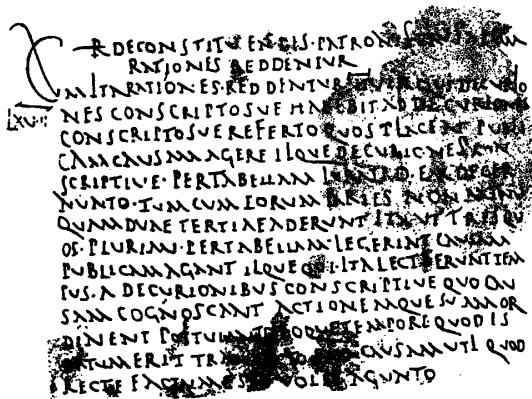 R DE CONSTITUENDIS · PATRONIS
RATIONES REDDENTUR
CUM ITA RATIONES · REDDENTUR IIVIR QUI DECURIO
LXVII NES CONSCRIPTOSVE HABEBIT AD DECURIONES
CONSCRIPTOSVE REFERTO QUOS PLACEAT PUBLI
CAM CAUSAM AGERE IIQUE DECURIONES CON
SCRIPTIVE · PER TABELLAM IURATI D · E · R · DECER
NUNTO · TUM CUM EORUM PARTES NON MINUS
QUAM DUAE TERTIAE ADERUNT ITA UT TRES QU
OS · PLURIMI · PER TABELLAM · LEGERINT CAUSAM
PUBLICAM AGANT IIQUE QUI · ITA LECTI ERUNT TEM
PUS · A DECURIONIBUS CONSCRIPTISVE QUO CAU
SAM COGNOSCANT ACTIONEMQUE SUAM OR
DINENT POSTULANTO EOQUE TEMPORE QUOD IS
DATUM ERIT CAUSAM UTI QUOD
RECTE FACTUM ESSE VOLET AGUNTO